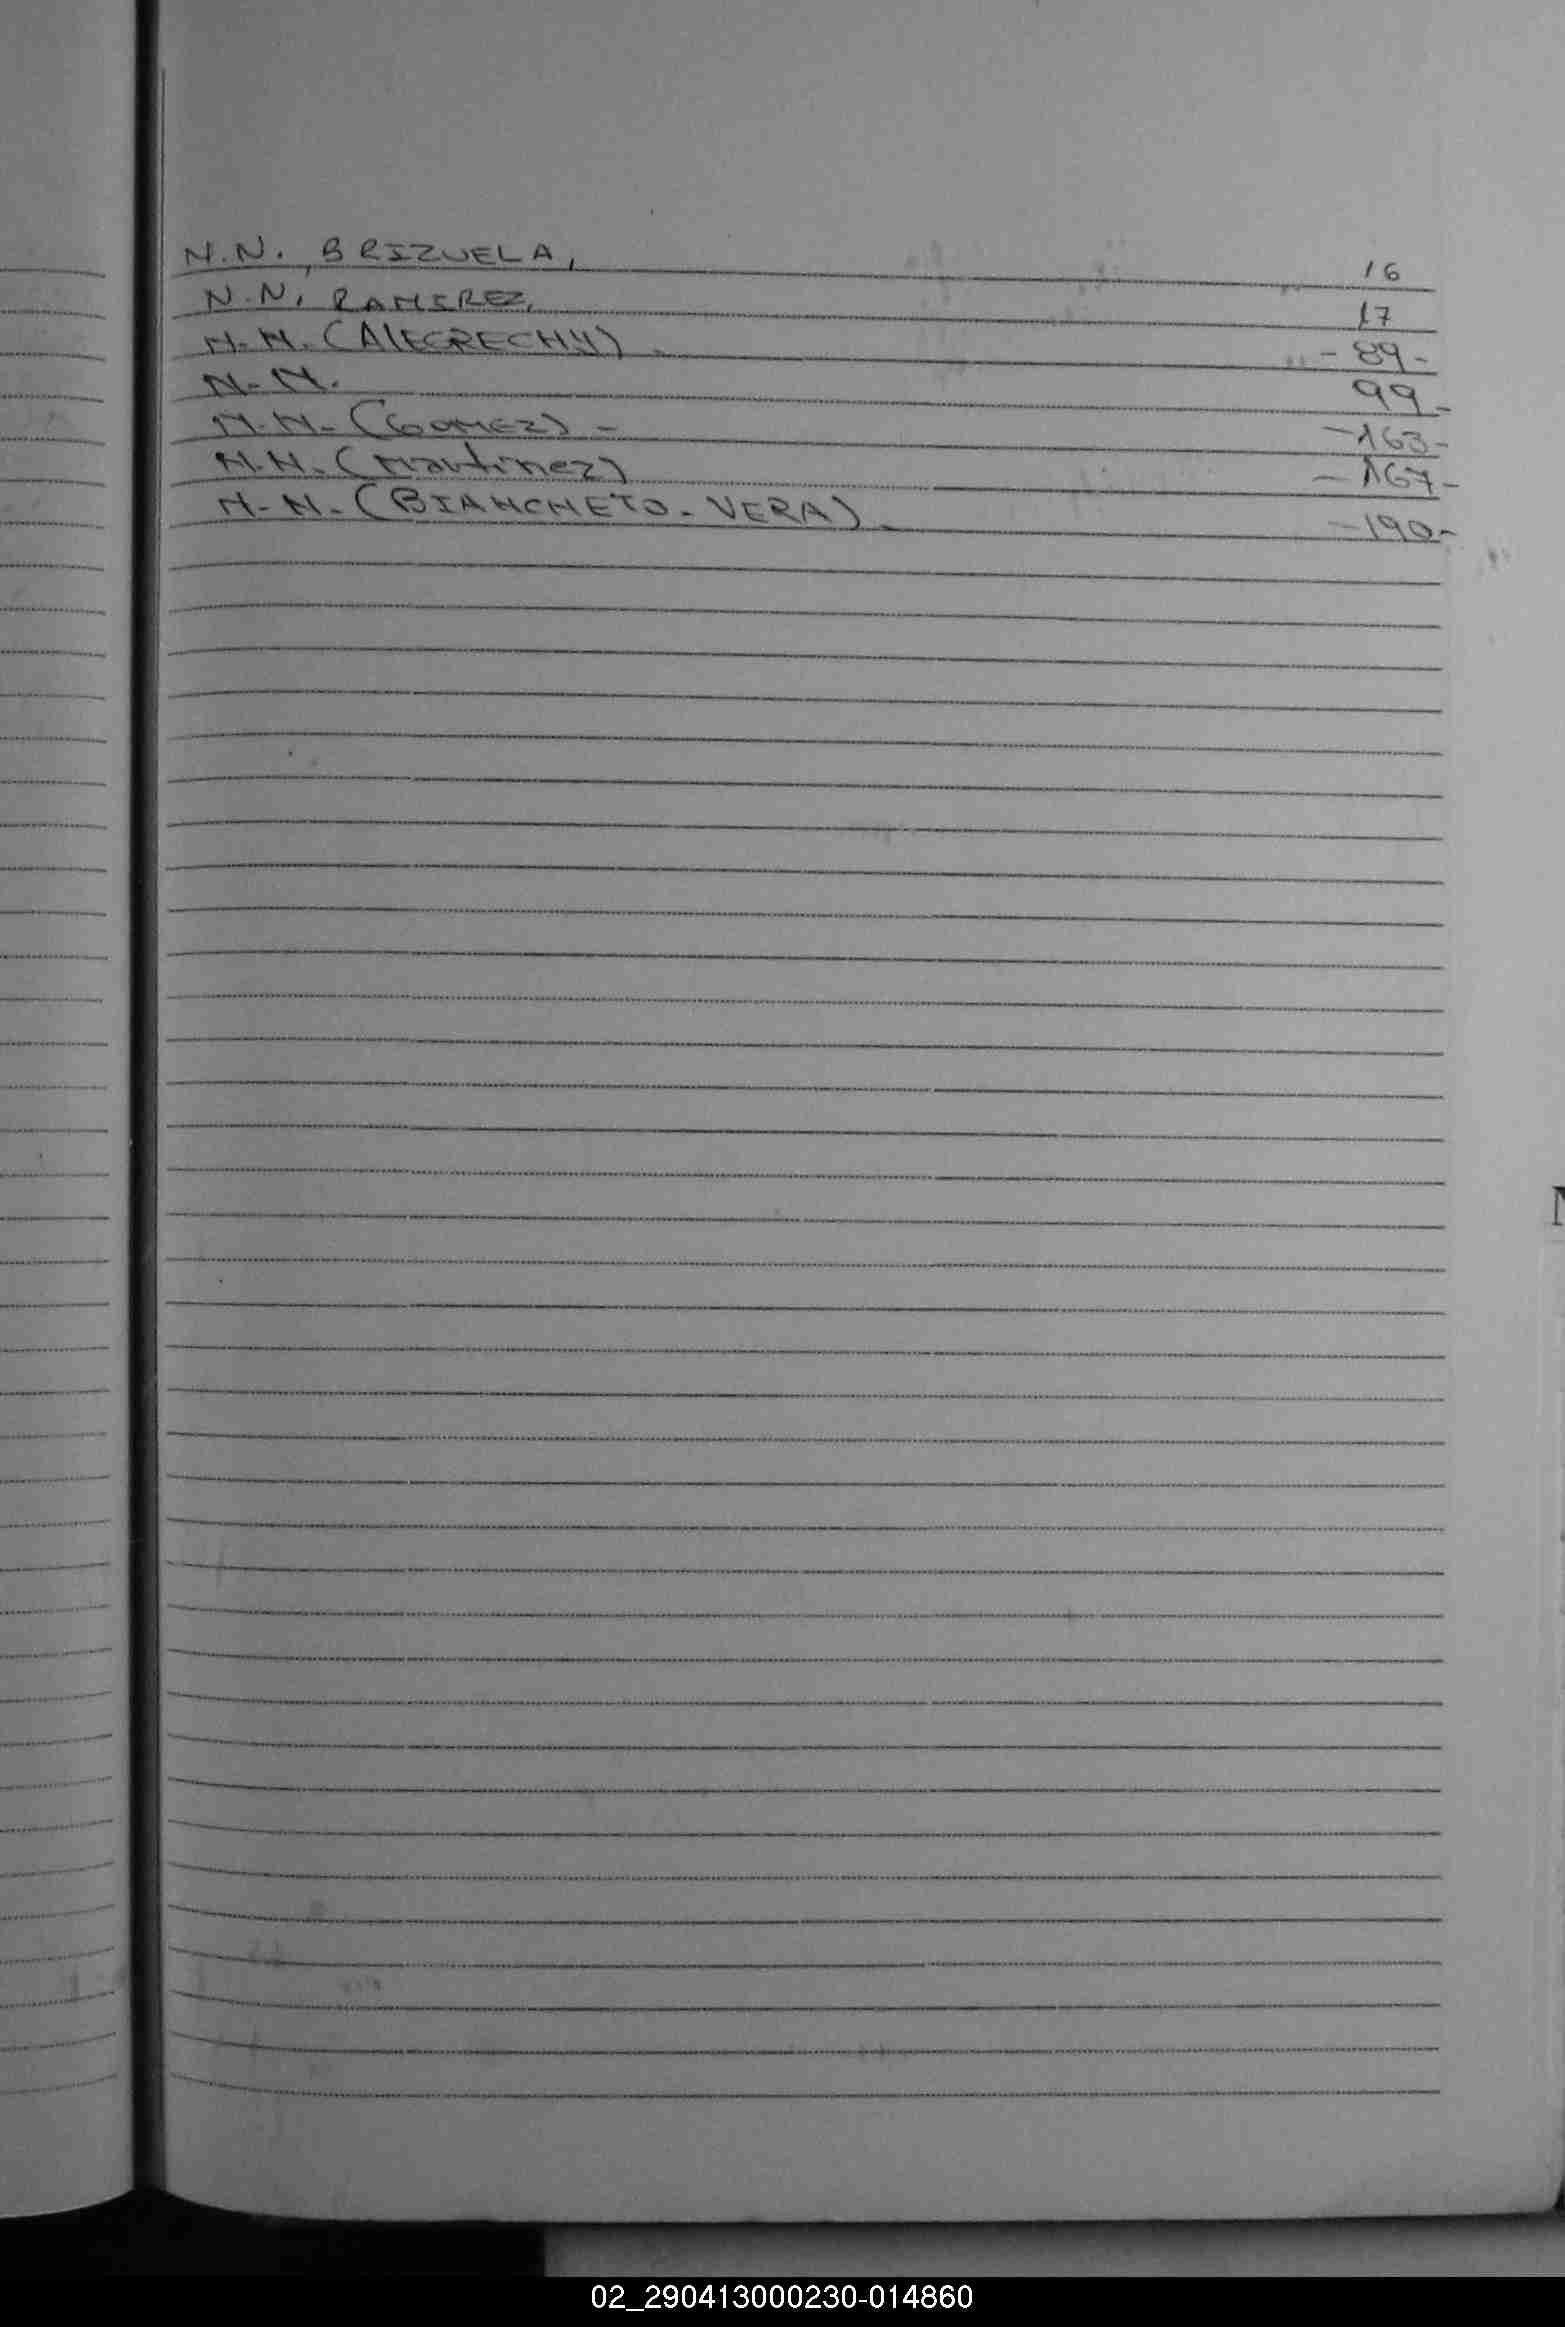 N.N., BRIZUELA, 16
N.N, RAMIREZ, 17
N.N. (AlEGRECHY). - 89-
N-N. 99-
N.N- (GOMEZ) - -163-
N.N. (Martinez) - 167-
N-N- (BIANCHETO-VERA)- -190-
N
02_290413000230-014860